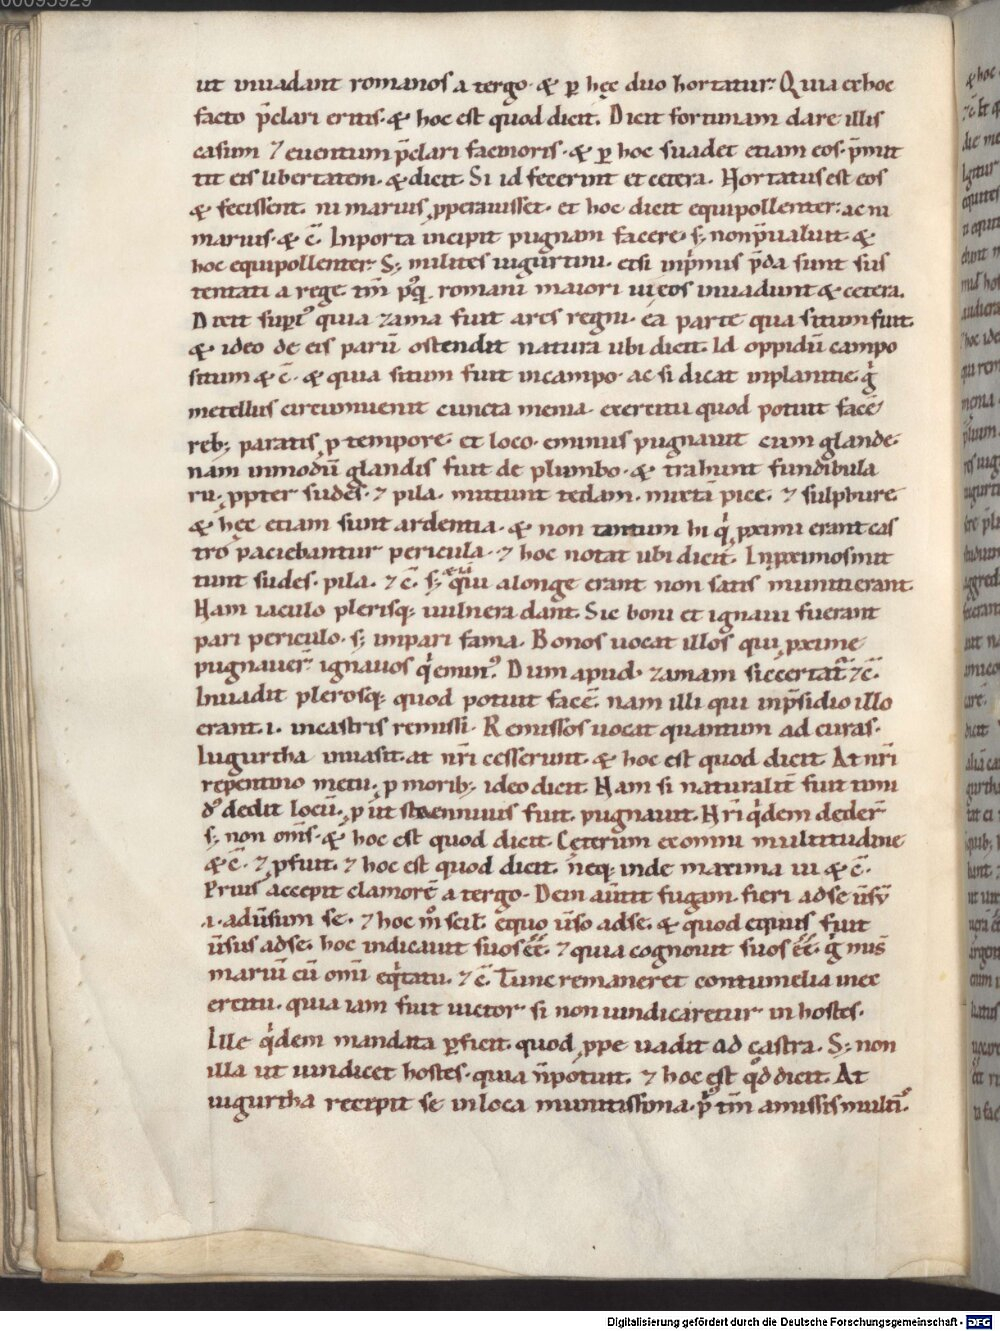 00095929
ut inuadant romanos a tergo· & ꝑ hęc duo hortatur· Quia ex hoc
facto p̄clari eritis· & hoc est quod dicit. Dicit fortunam dare illis
casum ⁊ euentum p̄clari facinoris· & ꝑ hoc suadet etiam eos· ꝓmit
tit eis libertatem· & dicit. Si id fecerint et cetera. Hortatus est eos
& fecissent. ni marius ꝓperauisset· et hoc dicit equipollenter: ac ni
marius· & c̄. In porta incipit pugnam facere· s; non p̄ualuit· &
hoc equipollenter. S; milites iugurtini· etsi inp̄mis p̄da sunt sus
tentati a rege· tm̄ p̓q romani maiori ui eos inuadunt & cetera.
Dicit sup̄i᾽ quia zama fuit arcs regni· ea parte qua situm fuit.
& ideo de eis parū ostendit natura ubi dicit. Id oppidū campo
situm & c̄· & quia situm fuit in campo· ac si dicat in planitie· g̍
metellus circumuenit cuncta menia· exercitu quod potuit facē
reb; paratis ꝓ tempore et loco· eminus pugnauit cum glande·
nam in modū glandis fuit de plumbo· & trahunt fundibula
rii· ꝓpter sudes· ⁊ pila· mittunt tedam· mixtā pice· ⁊ sulphure
& hęc etiam sunt ardentia· & non tantum hi q̍ ꝓximi erant cas
tro paciebantur pericula· ⁊ hoc notat ubi dicit. In ꝓximos mit
tunt sudes· pila· ⁊ c̄. s; & ia qui a longe erant non satis muniti erant.
Nam iaculo plerisq; uulnera dant. Sic boni et ignaui fuerant
pari periculo· s; impari fama. Bonos uocat illos qui ꝓxime
pugnauer̄· ignauos q̍ emin᾽. Dum apud zamam sic certat̄ ⁊ c̄.
Inuadit plerosq; quod potuit facē· nam illi qui in p̄sidio illo
erant .i. in castris remissi· Remissos uocat quantum ad curas·
Iugurtha inuasit· at nr̄i cesserunt· & hoc est quod dicit. At nr̄i
repentino metu· ꝓ morib; ideo dicit Nam si naturalit̄ fuit timi
d᾽ dedit locū· ꝓ ut strennuus fuit. pugnauit. Nr̄i q̍dem deder̄
s; non om̄s· & hoc est quod dicit. Ceterum ex omni multitudine
& c̄· ⁊ ꝓfuit· ⁊ hoc est quod dicit. neq; inde maxima ui & c̄·
Prius accepit clamorē a tergo· Dein aūtit fugam· fieri ad se ūsū
.i. aduersum se· ⁊ hoc m̊ scil. equo ūso ad se· & quod equus fuit
ūsus ad se· hoc indicauit suos ēē· ⁊ quia cognouit suos ēē· g̍ mis̄
mariū cū omi eq̍tatu· ⁊ c̄. Tunc remaneret contumelia in ex
ercitu· quia iam fuit uictor· si non uindicaretur in hostes·
Ille q̍dem mandata ꝑficit· quod ꝓpe uadit ad castra. S; non
illa ut uindicet hostes· quia n̄ potuit· ⁊ hoc est q̊d dicit. At
iugurtha recepit se in loca munitissima· p̓ tm̄ amissis mult᾽.
Digitalisierung gefördert durch die Deutsche Forschungsgemeinschaft - DFG